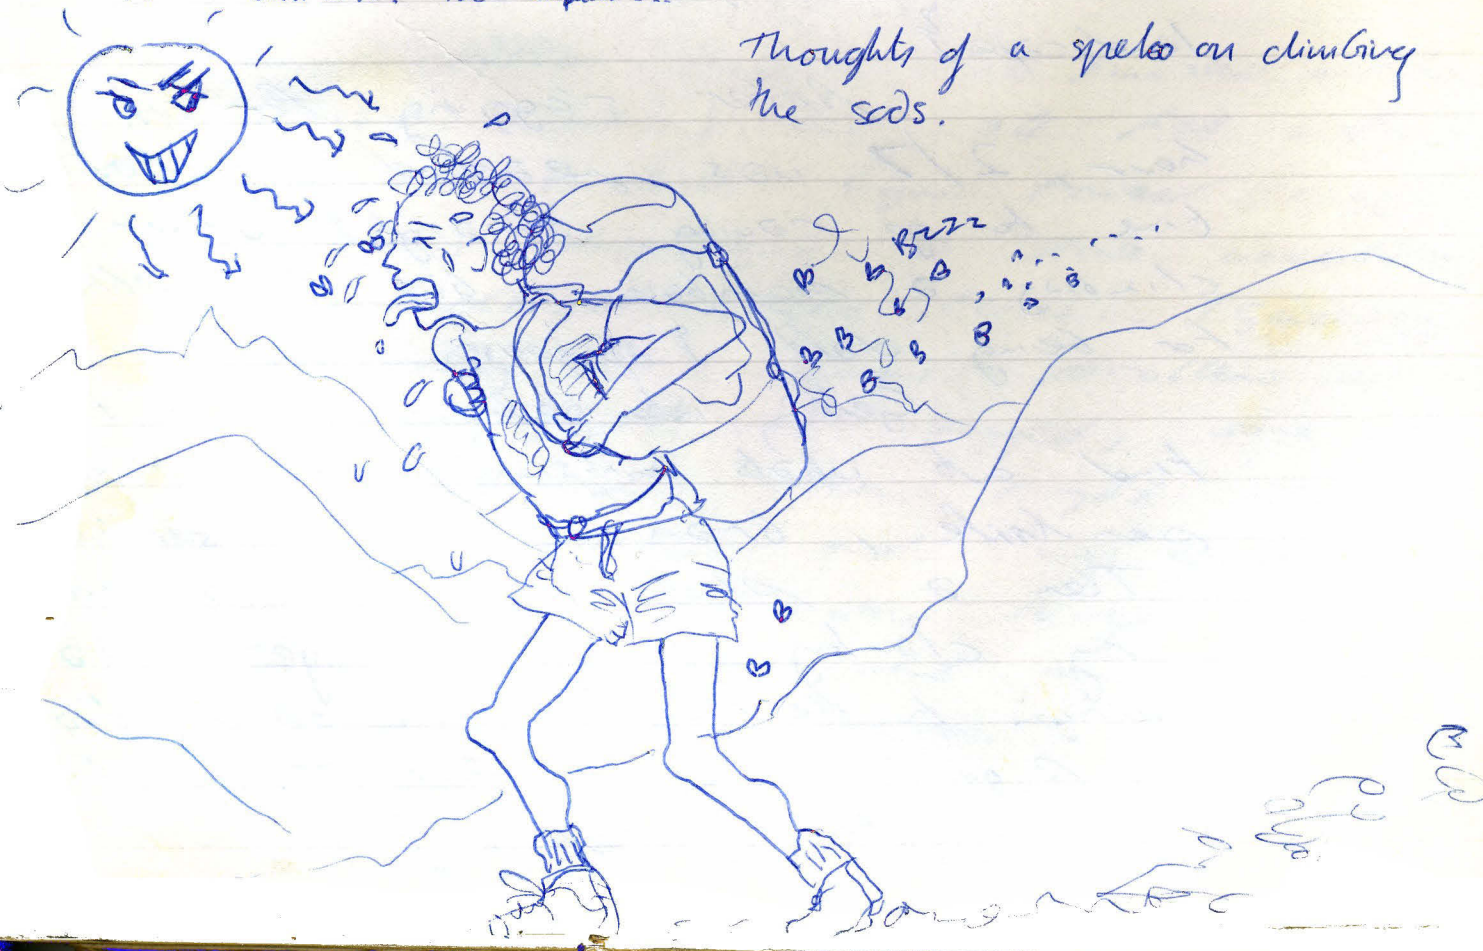 Thoughts of a speleo on climbing
the scds.
Bzzz